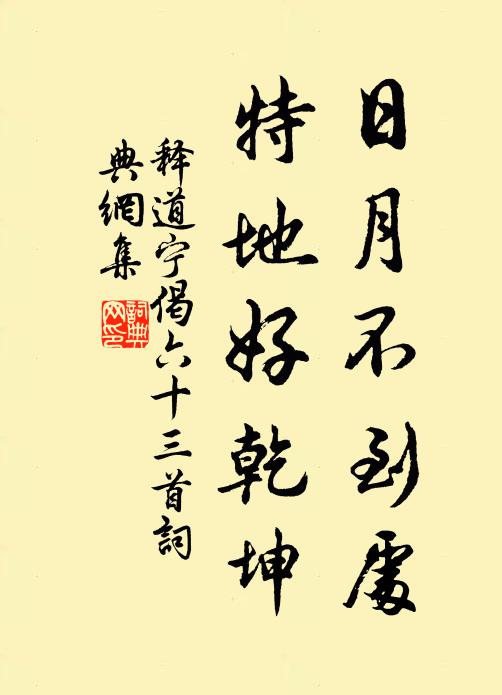 日月不到處
特地好乾坤
释道宁偈六十三首詞
典網集
詞典
网印